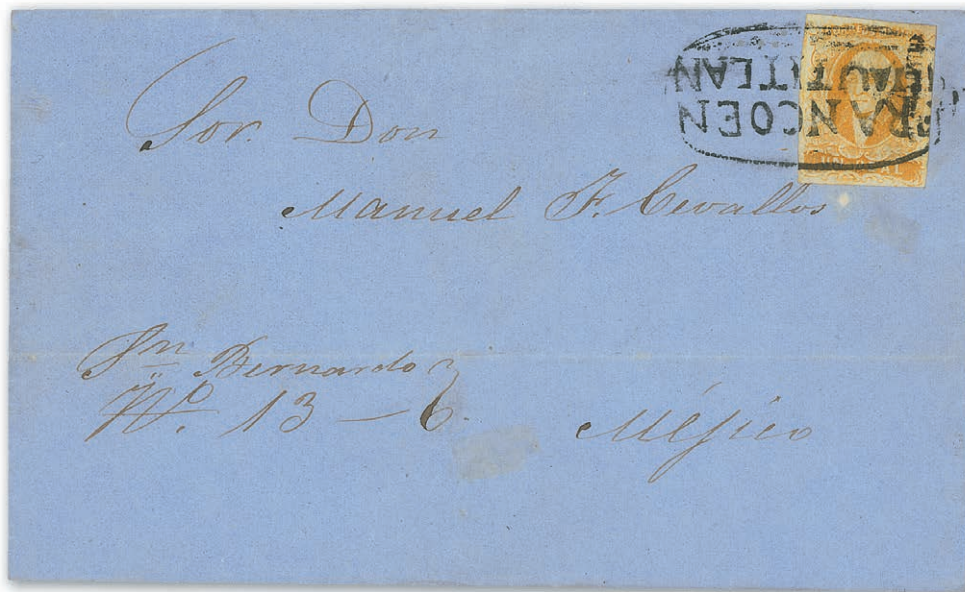 FRANCO EN
CUAUTITLAN
Sor. Don
Manuel F. Cevallos
Sn Bernardo
No. 13 — 6.
Méjico